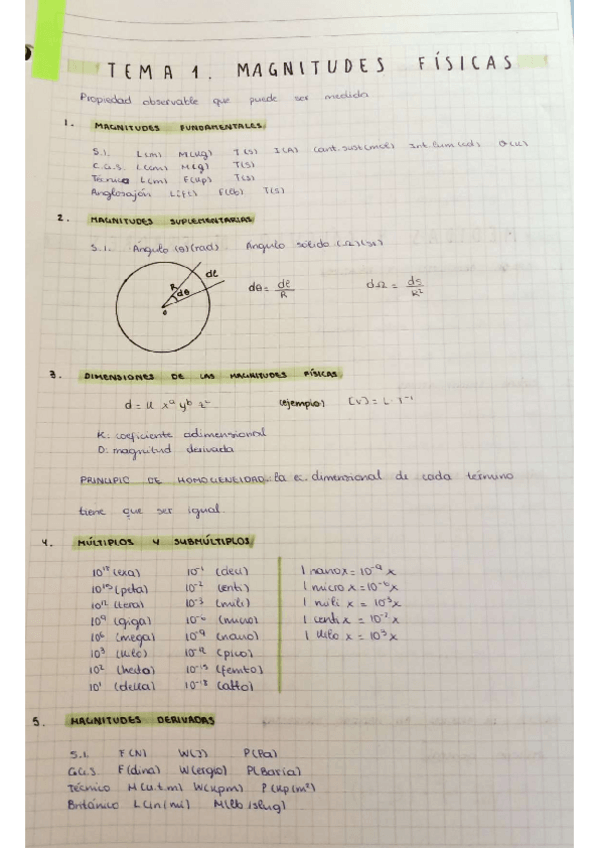 TEMA 1. MAGNITUDES FÍSICAS
Propiedad observable que puede ser medida
1. MAGNITUDES FUNDAMENTALES
S.I. L(m) M(kg) T(s) I(A) Cant.sust(mol) Int.lum(cd) θ(K)
C.G.S. L(cm) M(g) T(s)
Técnico L(m) F(kp) T(s)
Anglosajón L(ft) F(lb) T(s)
2. MAGNITUDES SUPLEMENTARIAS
S.I. Ángulo (θ)(rad) Ángulo sólido (Ω)(sr)
R dθ dl
dθ = dl/R dΩ = ds/R²
3. DIMENSIONES DE LAS MAGNITUDES FÍSICAS
d = K xᵃ yᵇ zᶜ (ejemplo) [v] = L · T⁻¹
K: coeficiente adimensional
D: magnitud derivada
PRINCIPIO DE HOMOGENEIDAD: la ec. dimensional de cada término
tiene que ser igual
4. MÚLTIPLOS Y SUBMÚLTIPLOS
10¹⁸ (exa) 10⁻¹ (deci) 1 nano x = 10⁻⁹ x
10¹⁵ (peta) 10⁻² (centi) 1 micro x = 10⁻⁶ x
10¹² (tera) 10⁻³ (mili) 1 mili x = 10⁻³ x
10⁹ (giga) 10⁻⁶ (micro) 1 centi x = 10⁻² x
10⁶ (mega) 10⁻⁹ (nano) 1 kilo x = 10³ x
10³ (kilo) 10⁻¹² (pico)
10² (hecto) 10⁻¹⁵ (femto)
10¹ (decca) 10⁻¹⁸ (atto)
5. MAGNITUDES DERIVADAS
S.I. F(N) W(J) P(Pa)
C.G.S F(dina) W(ergio) P(Baria)
Técnico M(u.t.m) W(kpm) P(kp/m²)
Británico L(in/mi) M(lb/slug)